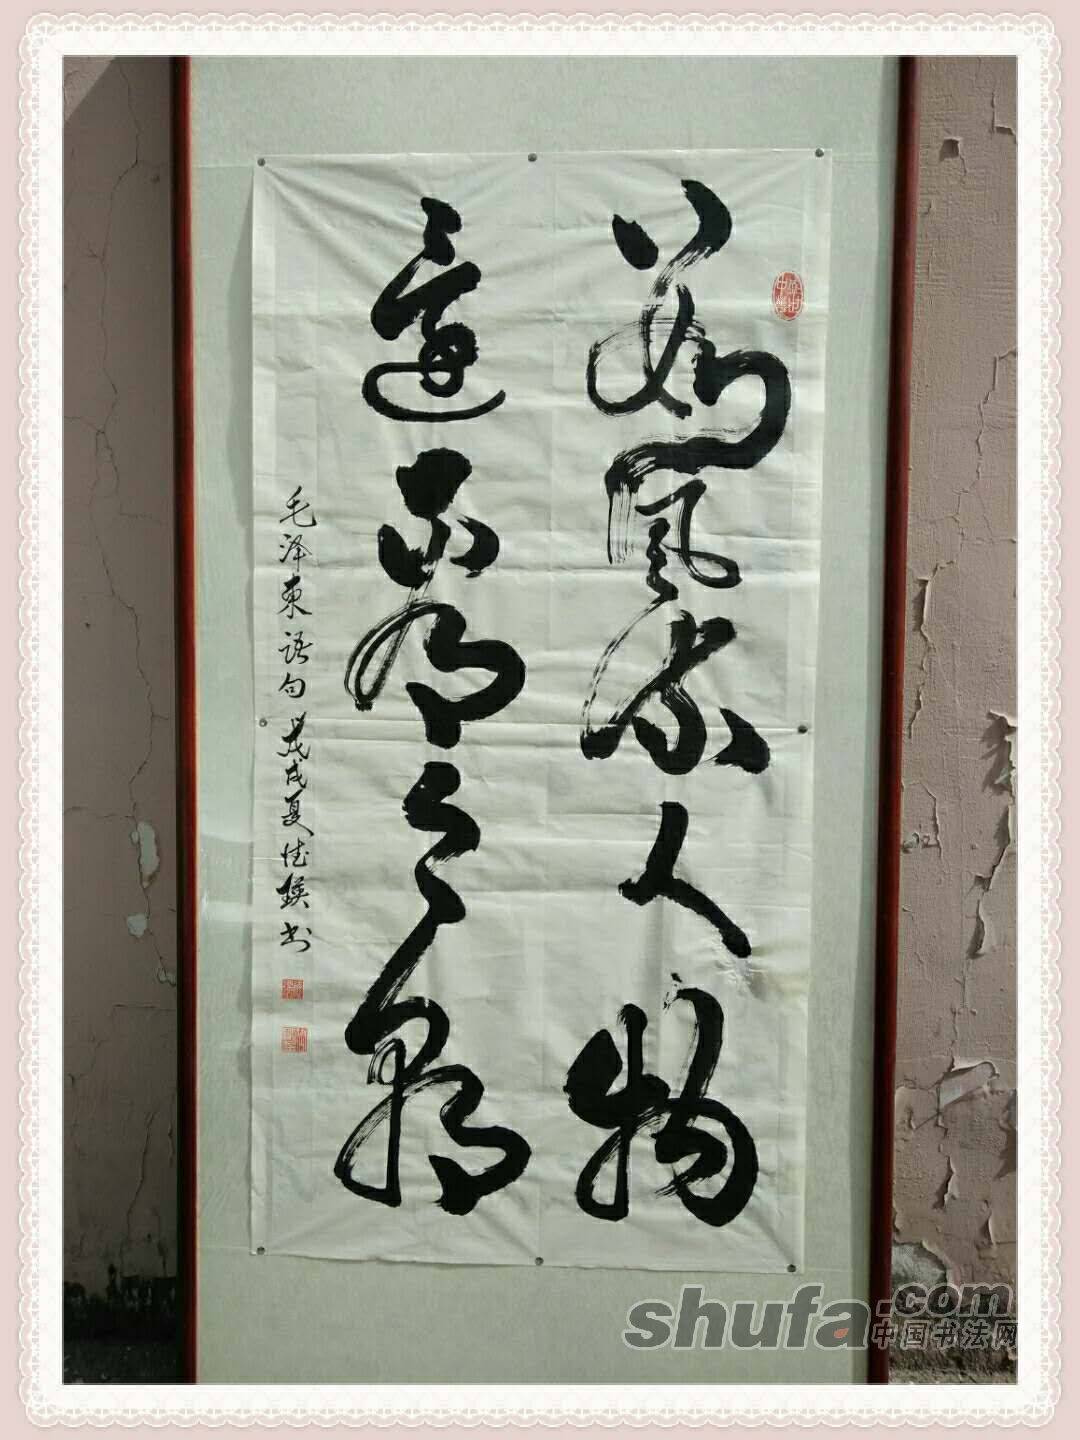 數風流人物
還看今朝
毛泽東语句 戊戌夏德书
shufa.com
中国书法网